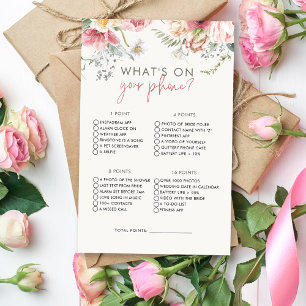 WHAT'S ON
your phone?
1 POINT
INSTAGRAM APP
ALARM CLOCK ON
WEATHER APP
RINGTONE IS A SONG
A PET SCREENSAVER
A SELFIE
4 POINTS
PHOTO OF BRIDE-TO-BE
CONTACT NAME WITH "Z"
PINTEREST APP
A VIDEO OF YOURSELF
GLITTERY PHONE CASE
BATTERY LIFE > 50%
8 POINTS
A PHOTO OF THE SHOWER
LAST TEXT FROM BRIDE
ALARM SET BEFORE 7AM
LOVE SONG IN MUSIC
100+ CONTACTS
A MISSED CALL
16 POINTS
OVER 1000 PHOTOS
WEDDING DATE IN CALENDAR
BATTERY LIFE < 10%
VIDEO WITH THE BRIDE
A TO-DO LIST
FITNESS APP
TOTAL POINTS: